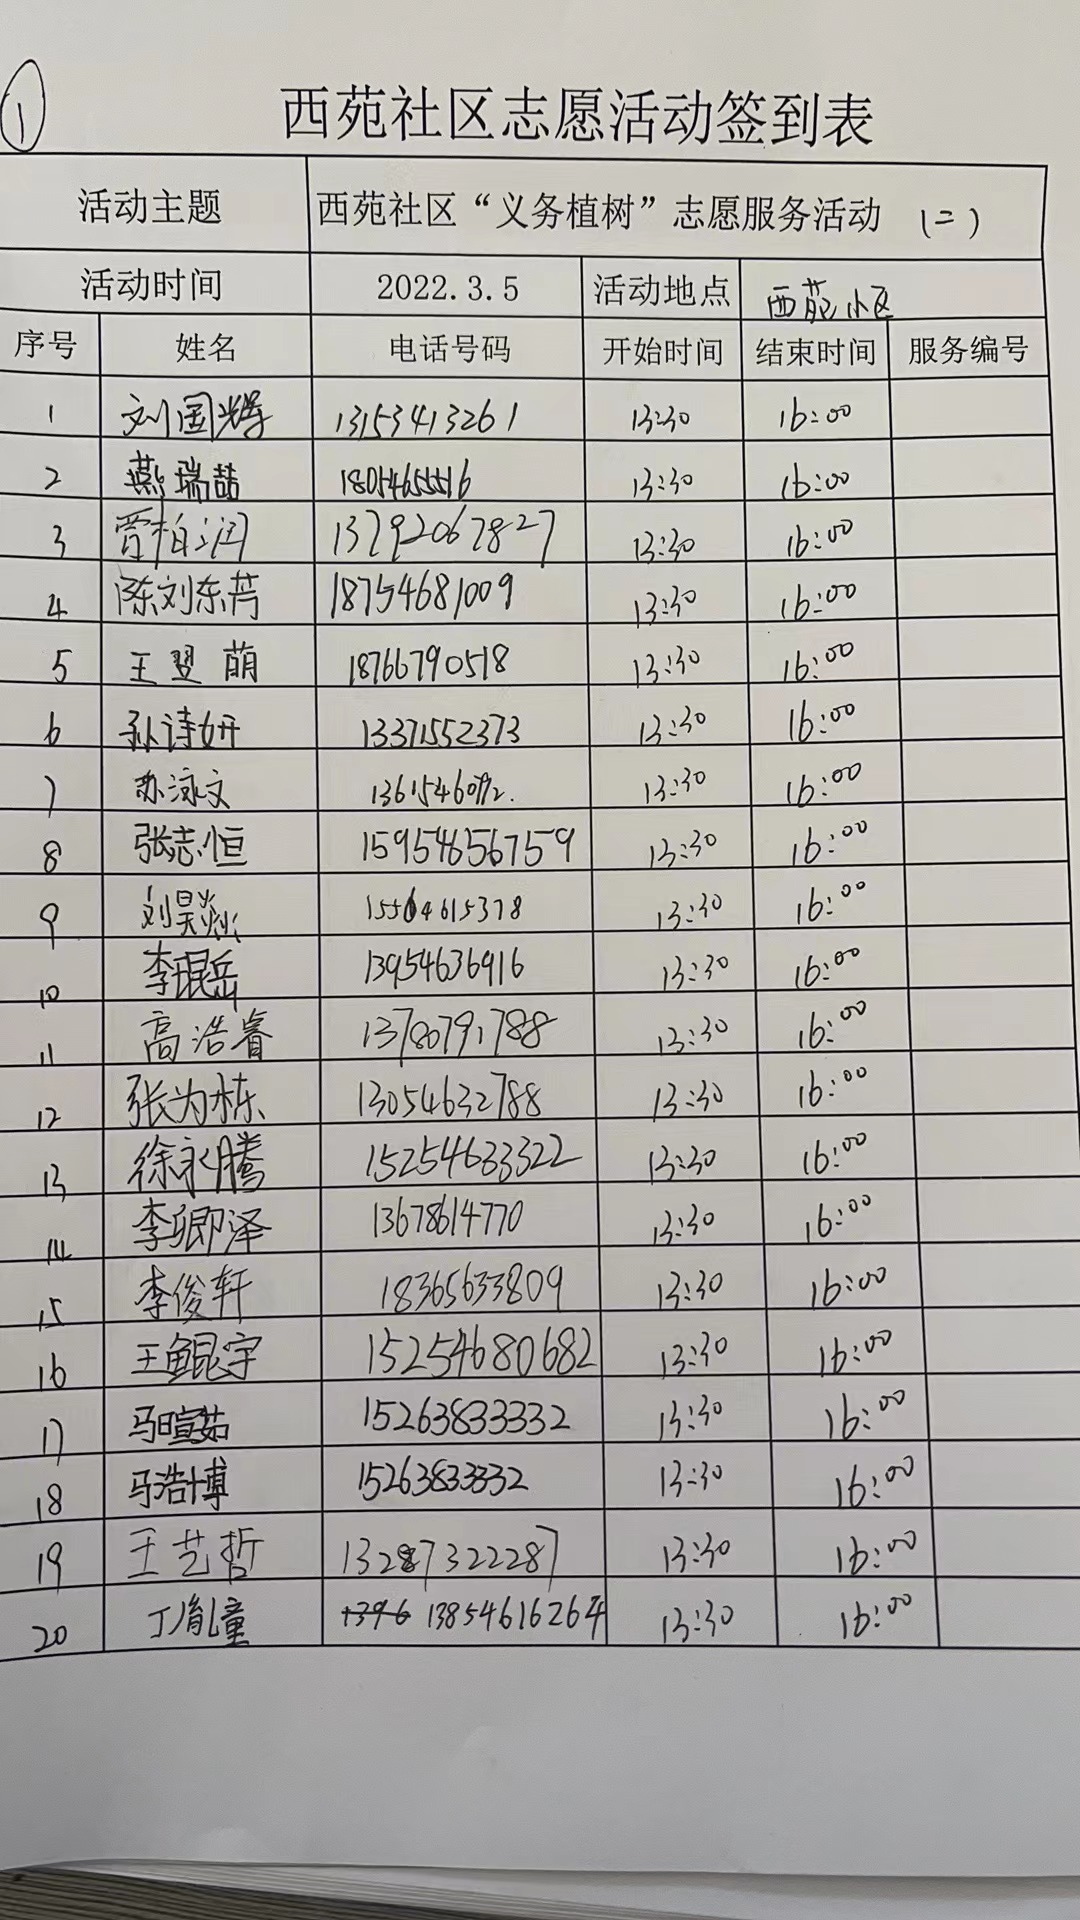 1
西苑社区志愿活动签到表
活动主题 西苑社区“义务植树”志愿服务活动 (二)
活动时间 2022.3.5 活动地点 西苑小区
序号 姓名 电话号码 开始时间 结束时间 服务编号
1 刘国辉 13153413261 13:30 16:00
2 燕瑞喆 18054655516 13:30 16:00
3 贾柏润 13792067827 13:30 16:00
4 陈刘东芮 18754681009 13:30 16:00
5 王翌萌 18766790518 13:30 16:00
6 孙诗妍 13371552373 13:30 16:00
7 苏泳文 13:30 16:00
8 张志恒 159548567759 13:30 16:00
9 刘昊焱 15564615378 13:30 16:00
10 李琨岳 13954636916 13:30 16:00
11 高浩睿 13780791788 13:30 16:00
12 张为栋 13054632788 13:30 16:00
13 徐永腾 15254633322 13:30 16:00
14 李卿泽 13678614770 13:30 16:00
15 李俊轩 18365633809 13:30 16:00
16 王鲲宇 15254680682 13:30 16:00
17 马暄茹 15263833332 13:30 16:00
18 马浩博 15263833332 13:30 16:00
19 王艺哲 13287322287 13:30 16:00
20 丁胤童 13854616264 13:30 16:00